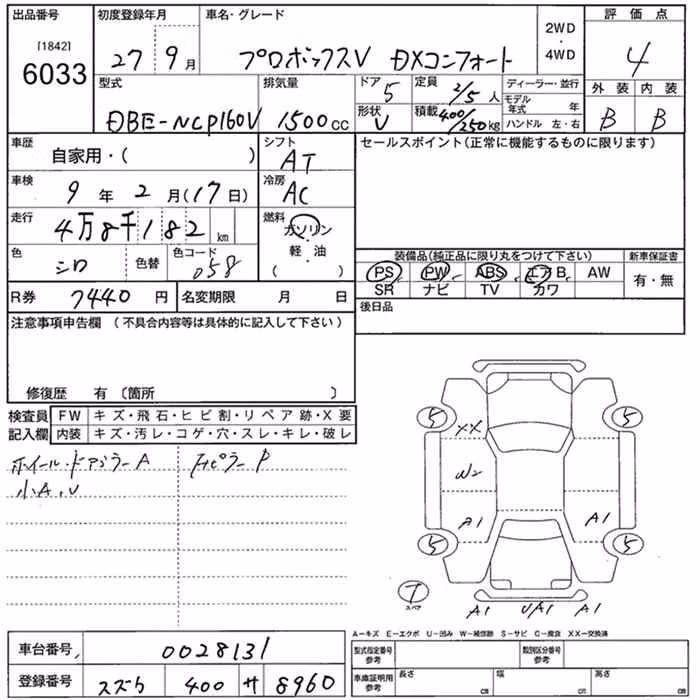 出品番号 初度登録年月 車名・グレード 2WD・4WD 評価点
[1842]
6033 27年 9月 プロボックスV DXコンフォート 4
型式 排気量 ドア 5 定員 2/5人 ディーラー・並行 外装 内装
DBE-NCP160V 1500cc 形状 V 積載 400/250kg モデル年式 年 B B
ハンドル 左・右
車歴 自家用・( ) シフト AT セールスポイント(正常に機能するものに限ります)
車検 9年 2月(17日) 冷房 AC
走行 4万8千182km 燃料 ガソリン・軽油( )
色 シロ 色替 色コード 058
装備品(純品に限り丸をつけて下さい) 新車保証書
PS PW ABS エアB AW 有・無
SR ナビ TV カワ
R券 7440円 名変期限 月 日 後日品
注意事項申告欄(不具合内容等は具体的に記入して下さい)
修復歴 有(箇所 )
検査員 FW キズ・飛石・ヒビ割・リペア跡・X要
記入欄 内装 キズ・汚レ・コゲ・穴・スレ・キレ・破レ
ホイール・ドアミラーA
小A、U
ピラー P
5 5
XX
W2
A1 A1
5 5
T
スペア
A1 UA1 A1
A-キズ E-エクボ U-凹み W-補修跡 S-サビ C-腐食 XX-交換済
車台番号 0028131 型式指定番号 参考 類別区分番号 参考
登録番号 スズカ 400 サ 8960 車庫証明用 参考 長さ cm 幅 cm 高さ cm